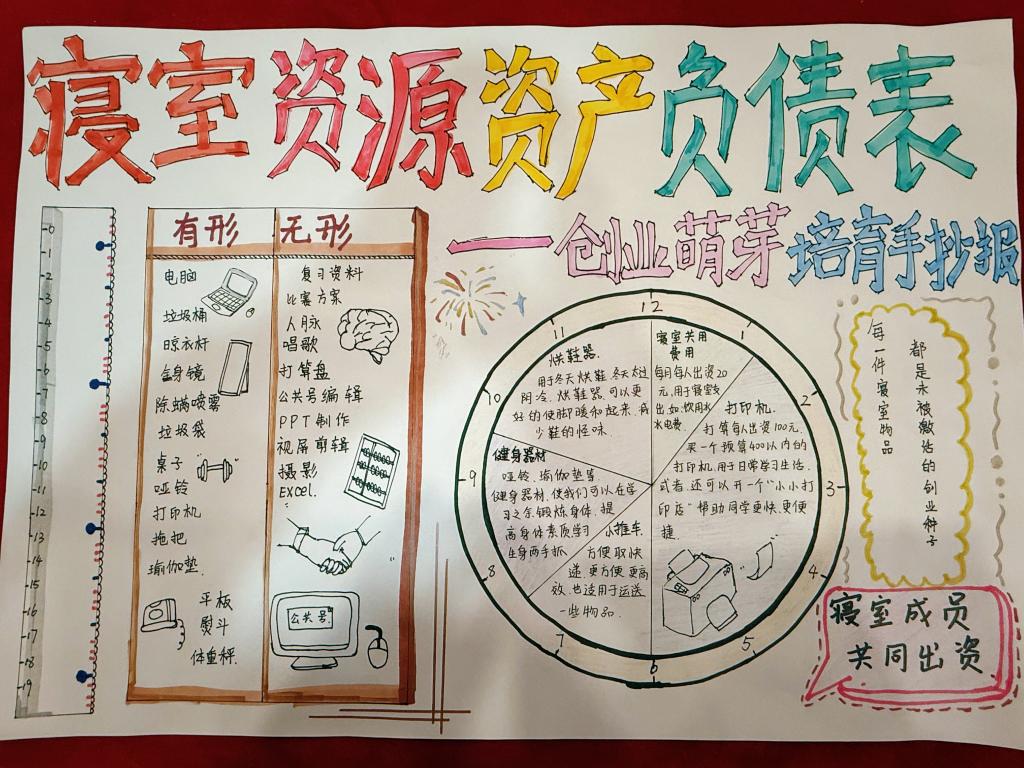 寝室资源资产负债表
一创业萌芽培育手抄报
0
1
2
3
4
5
6
7
8
9
10
11
12
13
14
15
16
17
18
19
有形
电脑
垃圾桶
晾衣杆
全身镜
除螨喷雾
垃圾袋
桌子
哑铃
打印机
拖把
瑜伽垫
平板
熨斗
体重秤
无形
复习资料
比赛方案
人脉
唱歌
打算盘
公众号编辑
PPT制作
视屏剪辑
摄影
EXCEL.
公关号
12
1
2
3
4
5
6
7
8
9
10
11
烘鞋器.
用于冬天烘鞋,冬天太过
阴冷.烘鞋器可以更
好的使脚暖和起来,减
少鞋的怪味.
寝室共用
费用
每月每人出资20
元,用于寝室支
出,如:饮用水
水电费.
打印机.
打算每人出资100元.
买一个预算400以内的
打印机,用于日常学习生活.
或者还可以开一个"小小打
印店"帮助同学更快,更便
捷.
健身器材
哑铃,瑜伽垫等
健身器材,使我们可以在学
习之余锻炼身体,提
高身体素质学习
生身两手抓
小推车.
方便取快
递,更方便更高
效,也适用于运送
一些物品.
每一件寝室物品
都是永被激活的创业种子
寝室成员
共同出资